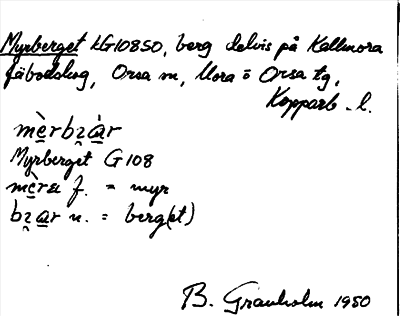 Myrberget LG10850, berg delvis på Kallmora
fäbodskog, Orsa sn, Mora o Orsa tg,
Kopparb. l.
mɛ̀rbɀàr
Myrberget G 108
f. = myr
n. = berg(et)
B. Granholm 1950